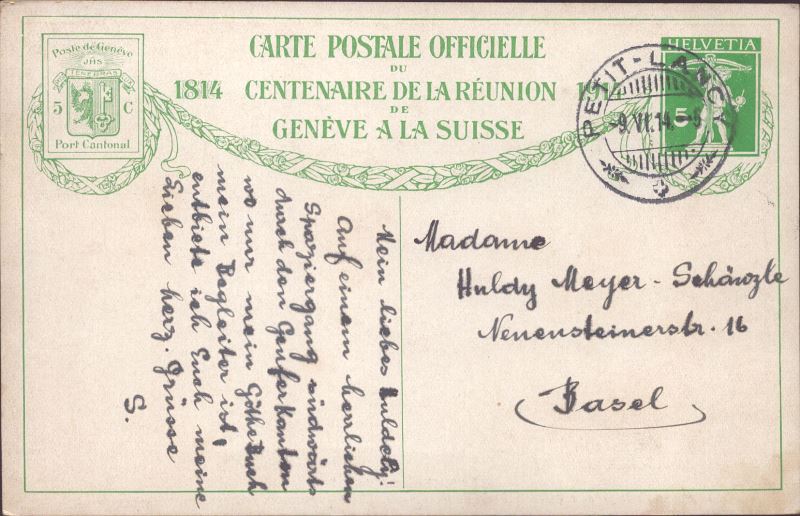 Poste de Genève
JHS
TENEBRAS
5 C
Port Cantonal
CARTE POSTALE OFFICIELLE
DU
1814 CENTENAIRE DE LA RÉUNION 1
DE
GENÈVE A LA SUISSE
HELVETIA
5
PETIT-LANCY
-9.VI.14.
Madame
Huldy Meyer-Schänzle
Neuensteinerstr. 16
Basel
Mein liebes Huldely!
Auf einem herrlichen
Spaziergang südwärts
durch den Genferkanton
wo nur mein Göthebuch
mein Begleiter ist,
entbiete ich Euch meine
lieben herz. Grüsse
S.